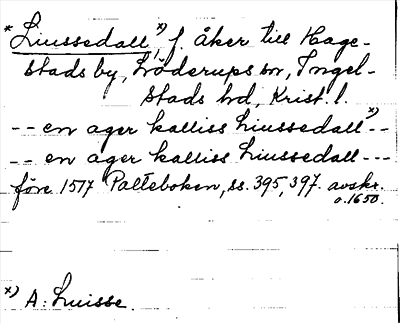 * Liussedall x), f. åker till Hage-
stads by, Löderups sn, Ingel-
stads hd, Krist. l.
-- en ager kalliss Liussedall x)--
-- en ager kalliss Liussedall ---
före 1517 Palteboken, ss. 395, 397. avskr.
o. 1650.
x) A: Luisse.